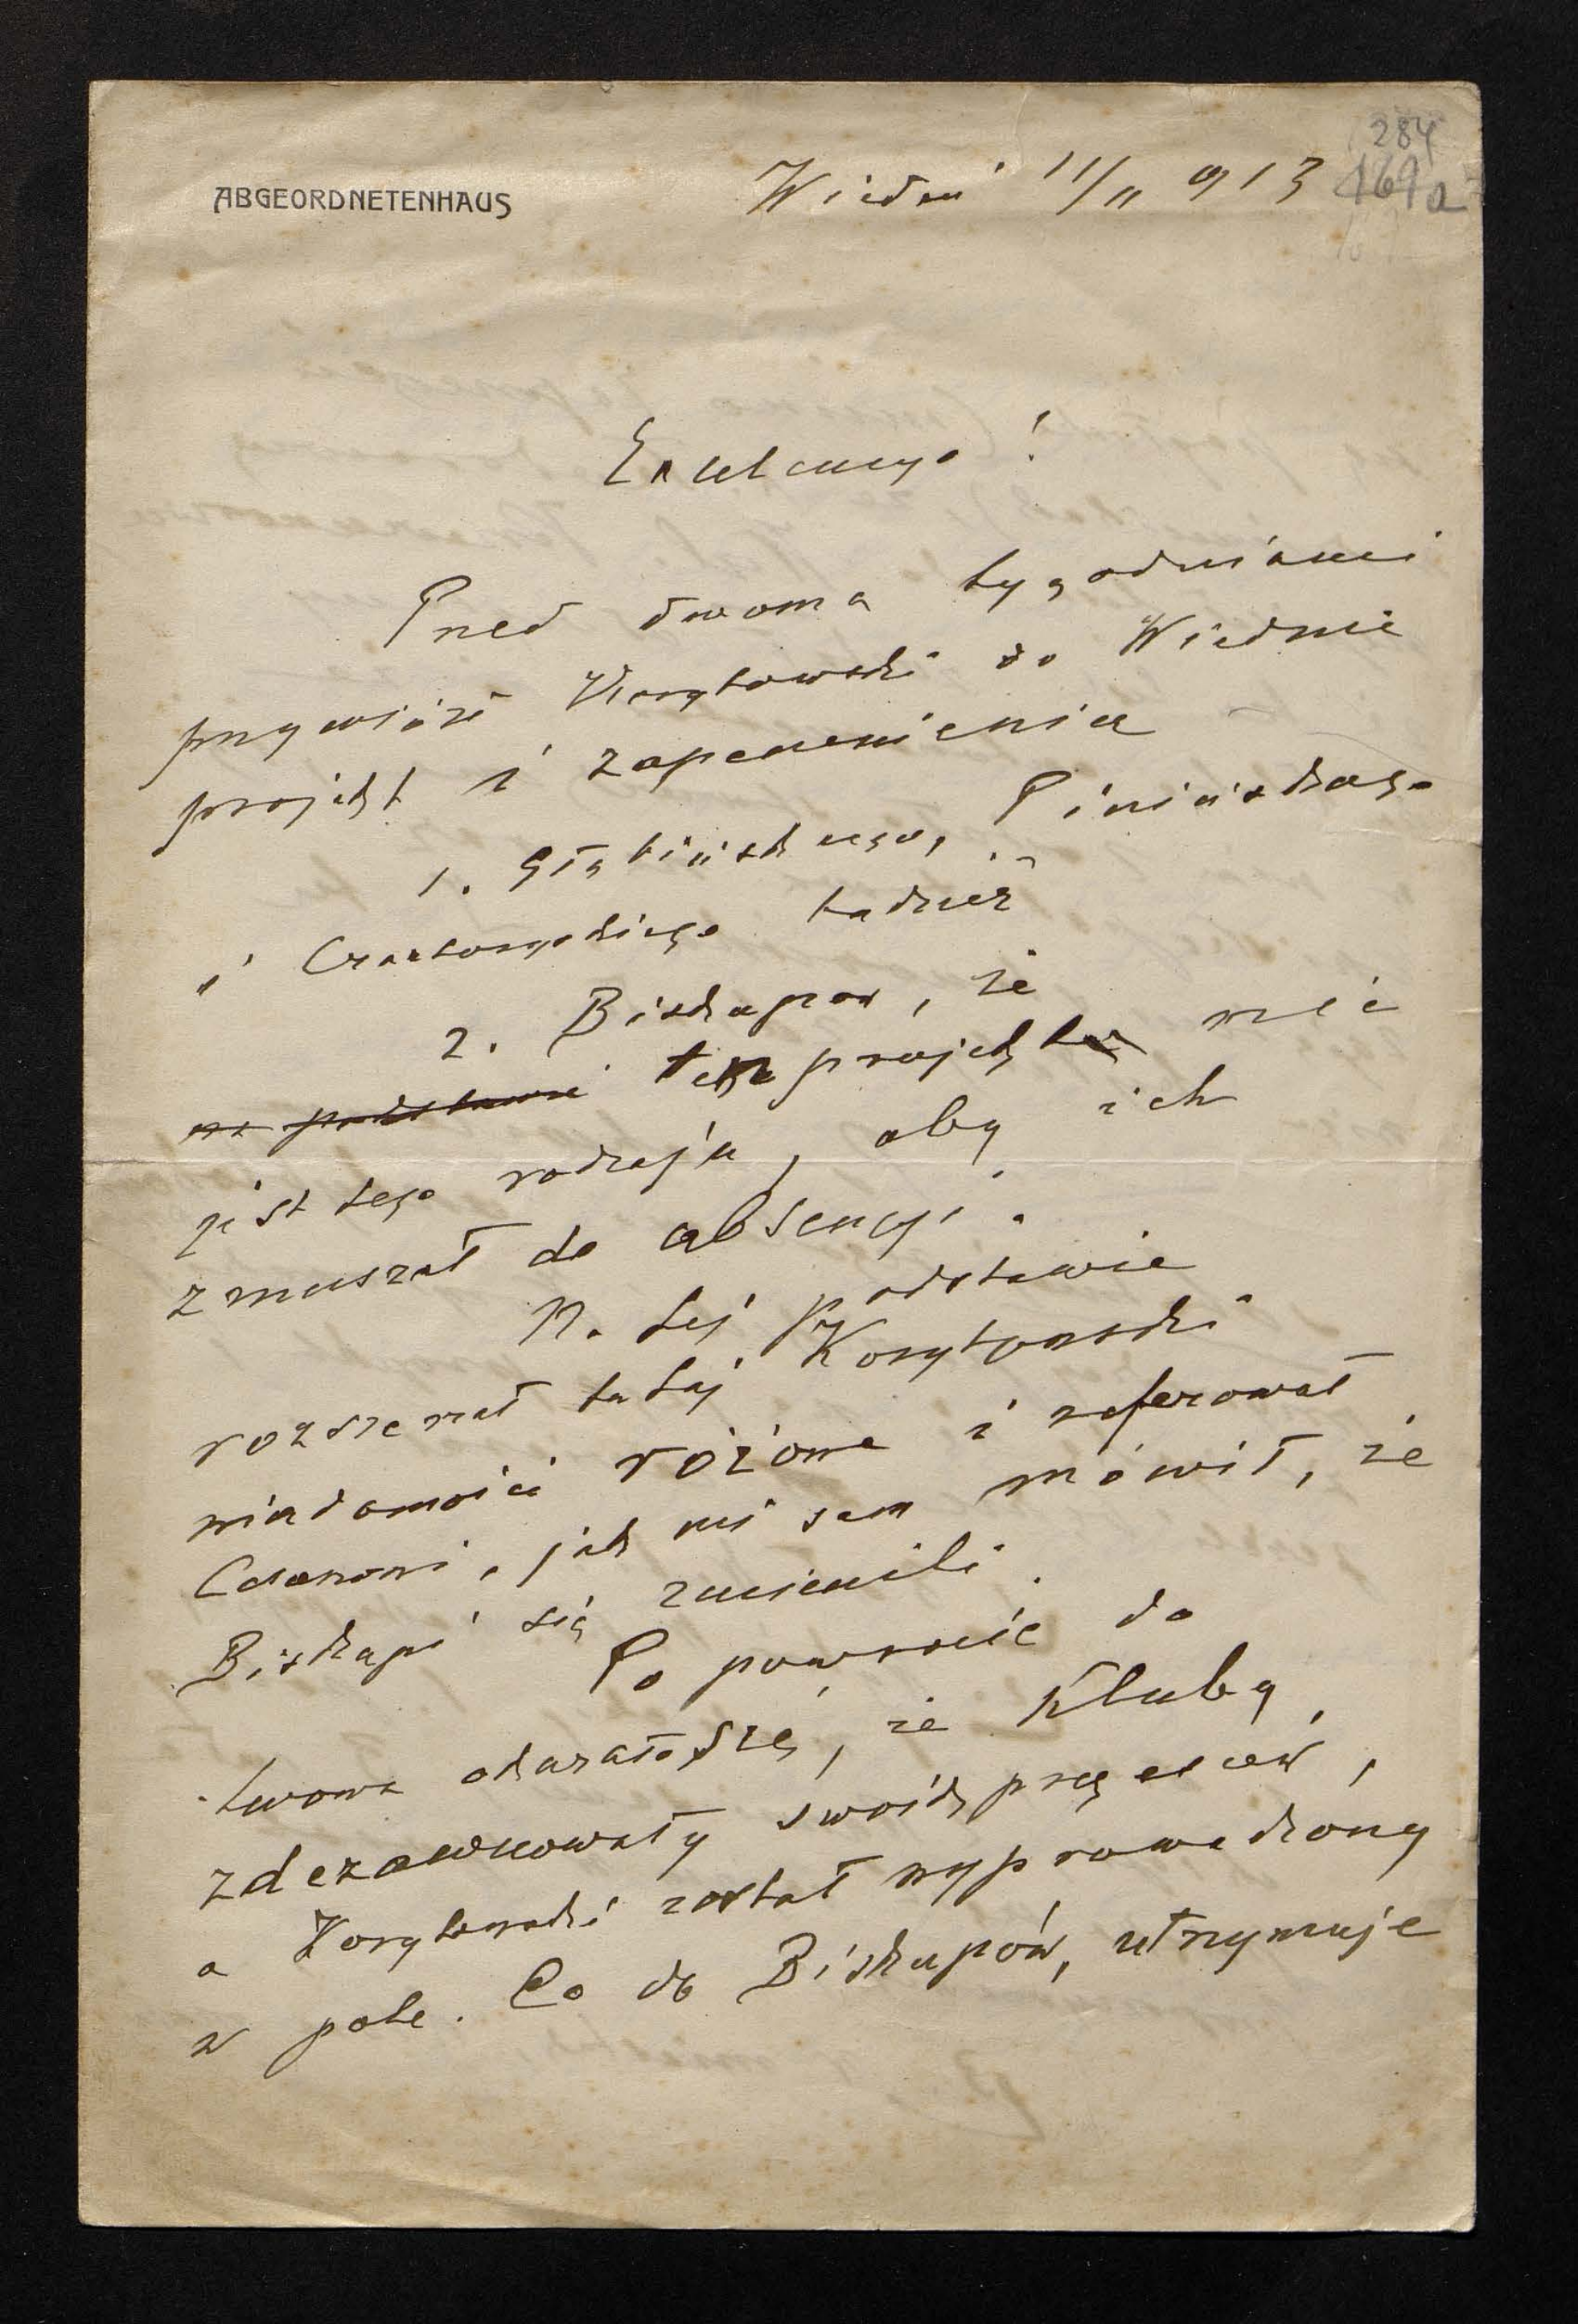 284
169a
ABGEORDNETENHAUS
Wiedeń 11/II 913
Excelencyo!
Przed dwoma tygodniami
przywiózł Korytowski do Wiednia
projekt i zapewnienia
1. Głąbińskiego, Pinińskiego
i Czartoryskiego tudzież
2. Biskupów, że
na podstawie tego projektu nie
jest tego rodzaju, aby ich
zmuszał do absencyi.
Na tej podstawie
rozsiewał tutaj Korytowski
wiadomości różowe i referował
Cesarzowi, jak mi sam mówił, że
Biskupi się zmienili.
Po powrocie do
Lwowa okazało się, że Kluby
zdezawuowały swoich prezesów,
a Korytowski został wyprowadzony
w pole. Co do Biskupów, utrzymuje